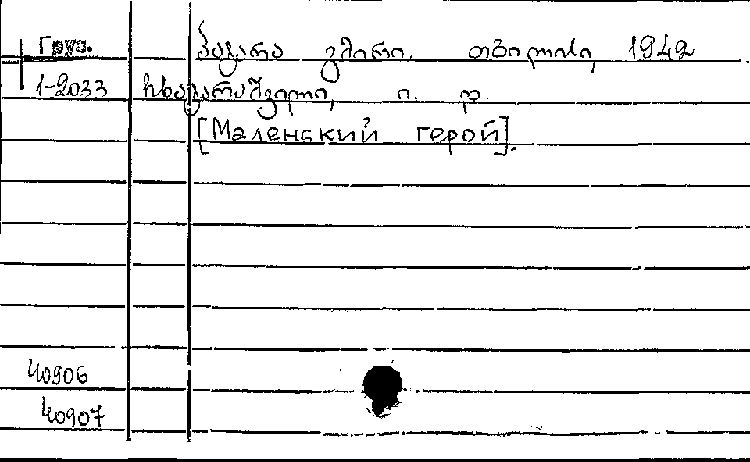 Груз. პატარა გმირი. თბილისი, 1942
1-2033 ჩხაკვარაშვილი, ი. დ
[Маленький герой].
40906
40907